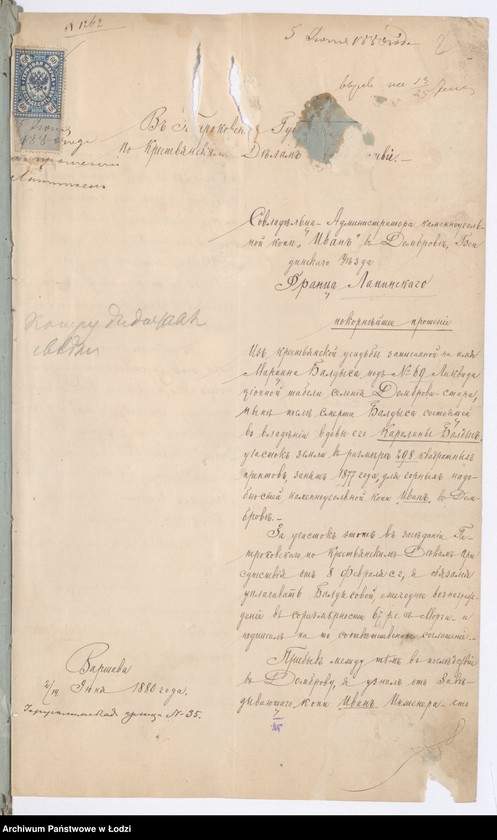 № 1262
5 Іюня 1880 года
2
Въ Петроковское Гу
по Крестьянскимъ Дѣламъ ствіе.
Совладѣльца - Администратора каменноуголь-
ной копи "Иванъ" въ Домбровѣ, Бен-
динскаго Уѣзда
Франца Лапинскаго
покорнѣйшее прошеніе
Изъ крестьянской усадьбы записанной на имя
Марцина Балдыса, подъ № 69 Ликвида
ціонной табели селенія Домброва-стара,
нынѣ послѣ смерти Балдыса состоящей
во владѣніи вдовы его Каролины Балдысъ,
участокъ земли въ размѣрѣ 208 квадратныхъ
прентовъ, занятъ 1877 года, для горныхъ надоб-
ностей каменноугольной копи Иванъ, въ Дом-
бровѣ.
За участокъ этотъ въ засѣданіи Пе-
троковскаго по Крестьянскимъ Дѣламъ При-
сутствія отъ 8 Февраля с. г. я обязался
уплачивать Балдысовой ежегодно вознаграж-
деніе въ соразмѣрности 67 р. с. съ Морга и
подписалъ на то соотвѣтственное соглашеніе.
Прибывъ между тѣмъ въ послѣдствіи
въ Домброву, я узналъ отъ Завѣ-
дывающаго копи Иванъ Инженера
Варшава
2/14 Іюня 1880 года.
Іерусалимская улица № 35.
Archiwum Państwowe w Łodzi